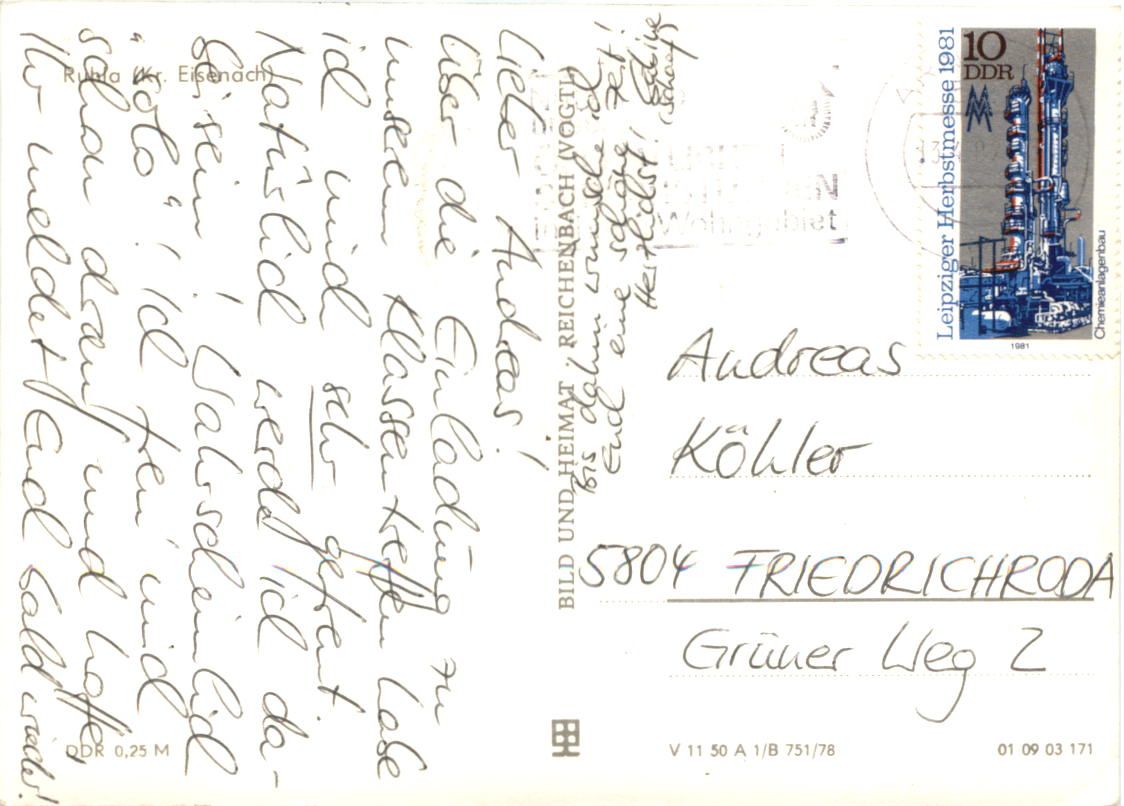 Ruhla (Kr. Eisenach)
Lieber Andreas!
Über die Einladung zu
unserem Klassentreffen habe
ich mich sehr gefreut.
Natürlich werde ich da-
bei sein! Wahrscheinlich
"solo"! Ich freu' mich
schon drauf und hoffe,
Ihr meldet Euch bald wieder!
Bis dahin wünsche ich
Euch eine schöne Zeit!
Herzlichst!
BILD UND HEIMAT, REICHENBACH (VOGTL)
Leipziger Herbstmesse 1981
10
DDR
Chemieanlagenbau
1981
Wohngebiet
Andreas
Köhler
5804 FRIEDRICHRODA
Grüner Weg 2
DDR 0,25 M
V 11 50 A 1/B 751/78
01 09 03 171